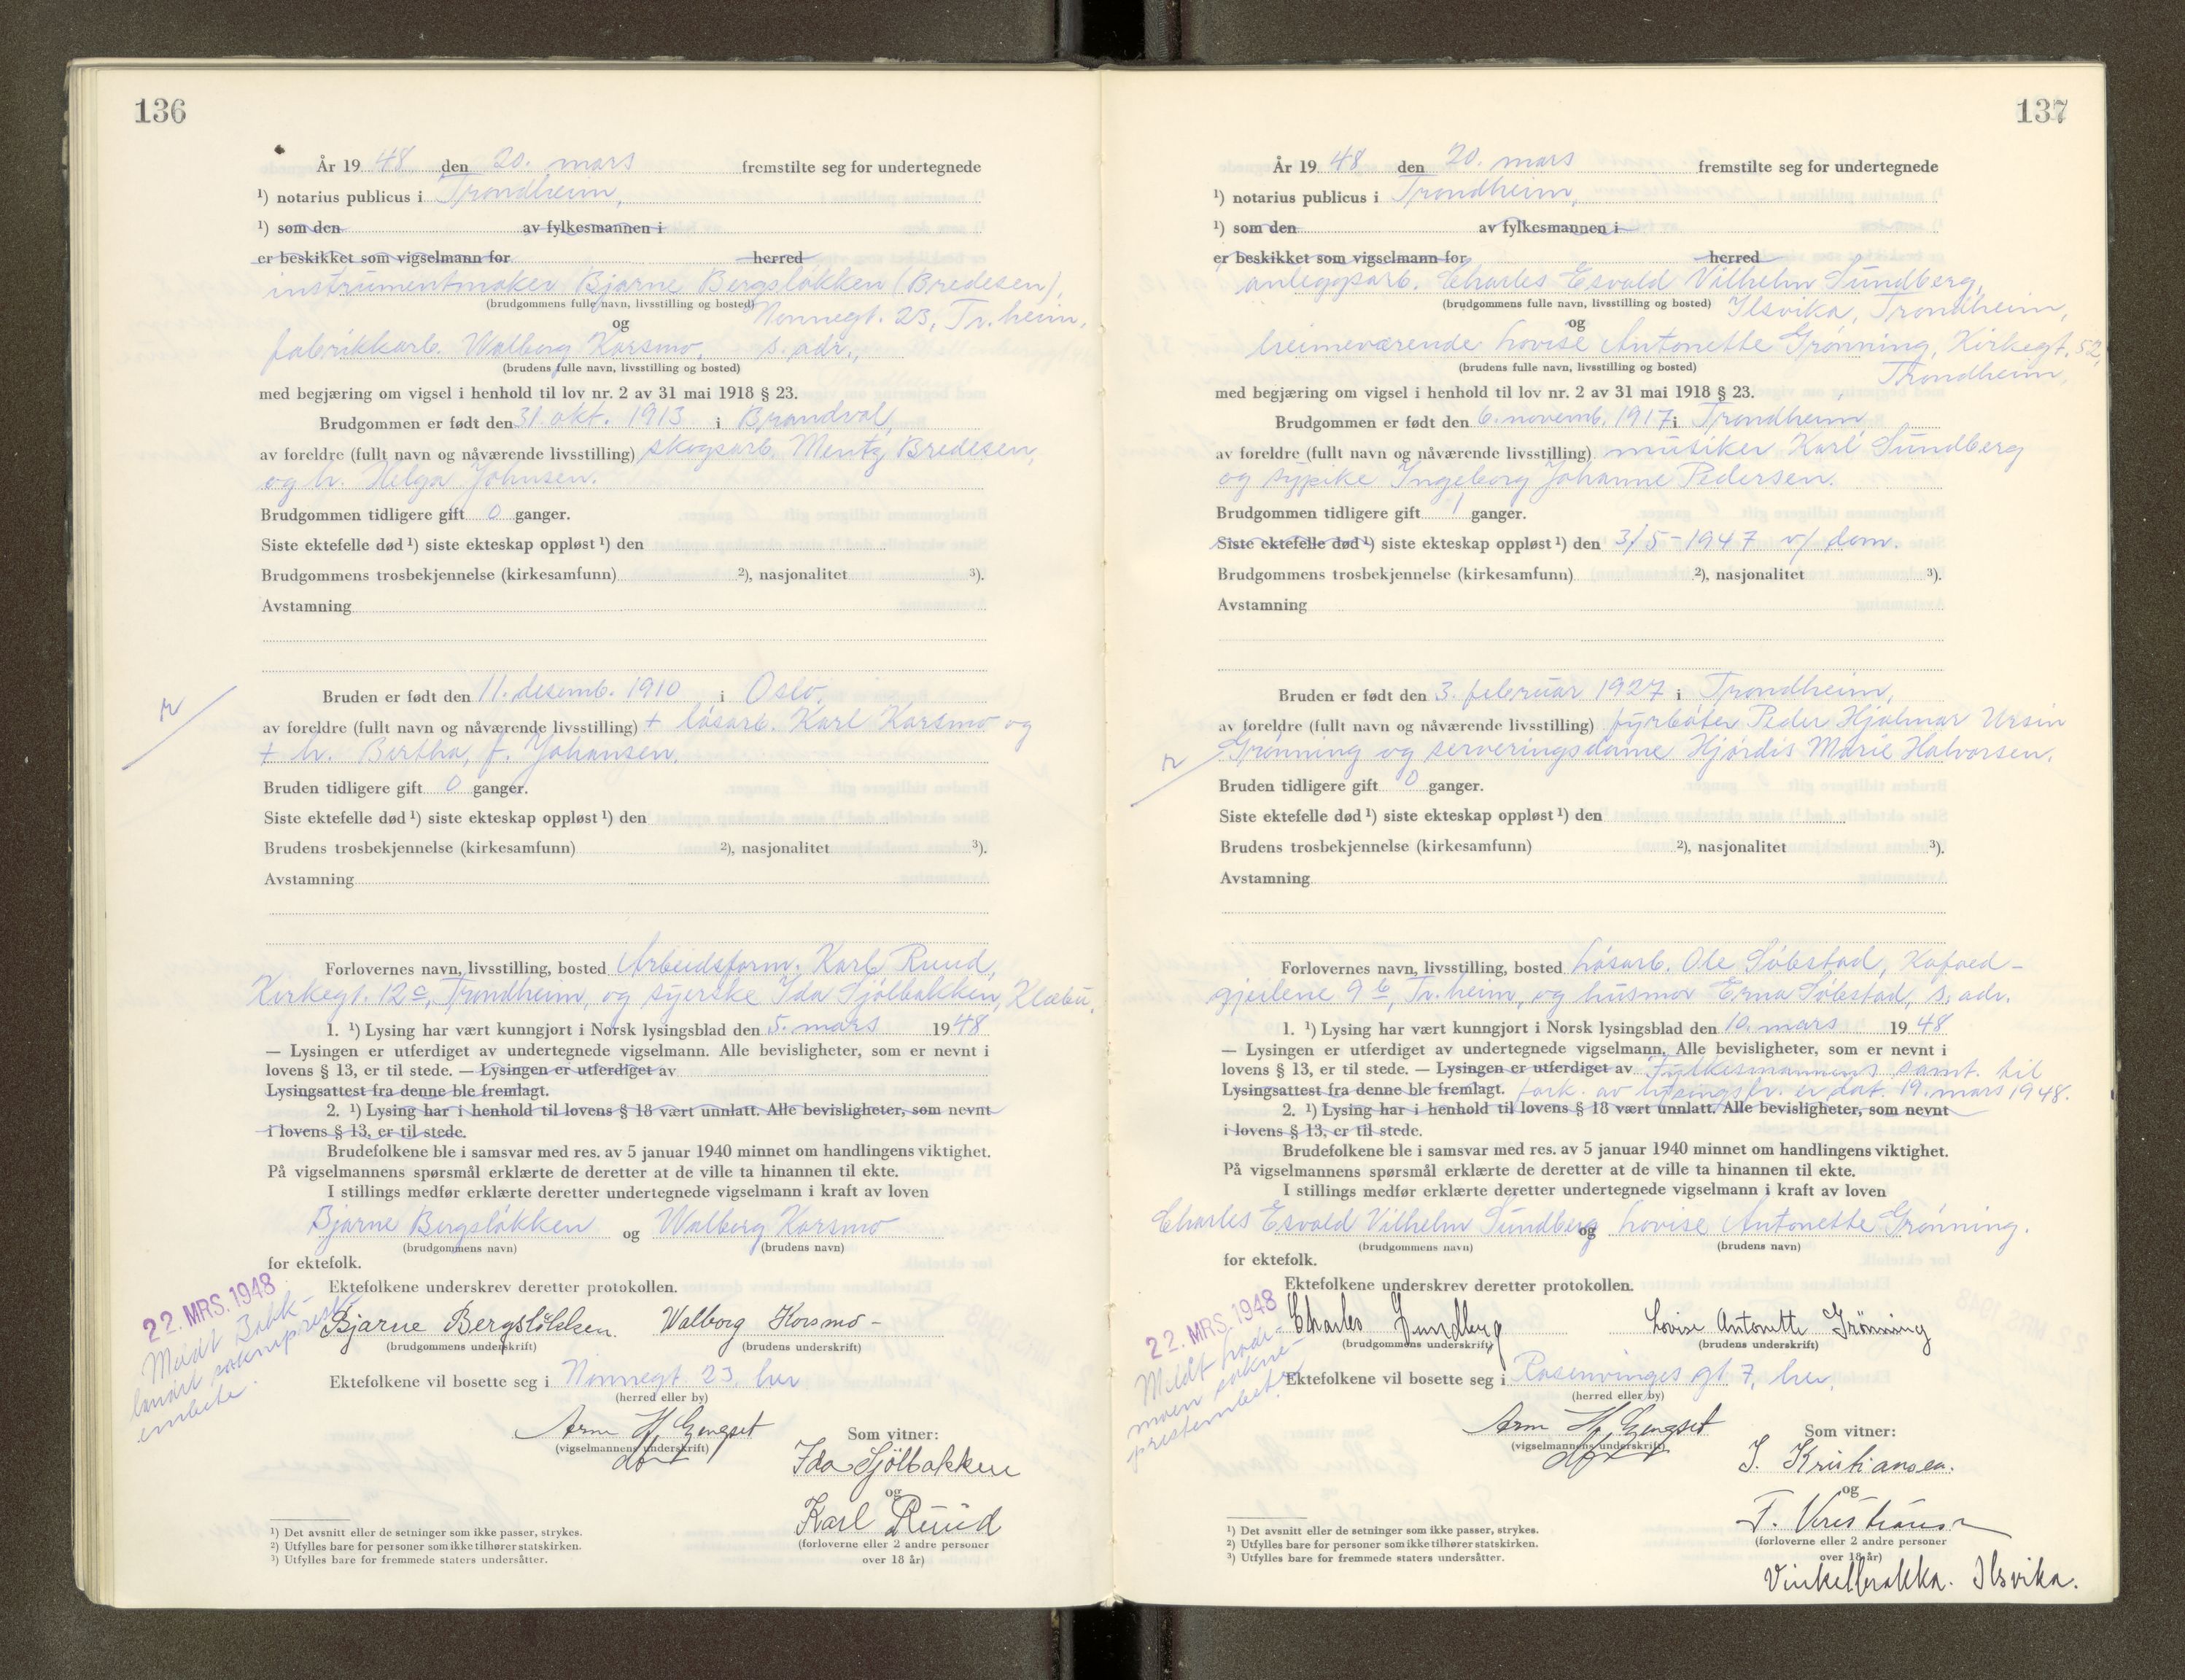 136
År 19 48 den 20. mars fremstilte seg for undertegnede
¹) notarius publicus i Trondheim,
¹) som den av fylkesmannen i
er beskikket som vigselmann for herred
instrumentmaker Bjarne Bergsløkken (Bredesen),
(brudgommens fulle navn, livsstilling og bosted)
Nonnegt. 23, Tr.heim,
og
fabrikkarb. Walborg Korsmo, s. adr.,
(brudens fulle navn, livsstilling og bosted)
med begjæring om vigsel i henhold til lov nr. 2 av 31 mai 1918 § 23.
Brudgommen er født den 31. okt. 1913 i Brandval,
av foreldre (fullt navn og nåværende livsstilling) skogsarb. Mentz Bredesen,
og h. Helga Johnsen.
Brudgommen tidligere gift 0 ganger.
Siste ektefelle død ¹) siste ekteskap oppløst ¹) den
Brudgommens trosbekjennelse (kirkesamfunn) ²), nasjonalitet ³).
Avstamning
Bruden er født den 11. desemb. 1910 i Oslo,
av foreldre (fullt navn og nåværende livsstilling) + løsarb. Karl Korsmo og
+ h. Bertha, f. Johansen.
Bruden tidligere gift 0 ganger.
Siste ektefelle død ¹) siste ekteskap oppløst ¹) den
Brudens trosbekjennelse (kirkesamfunn) ²), nasjonalitet ³).
Avstamning
Forlovernes navn, livsstilling, bosted Arbeidsform. Karl Ruud,
Kirkegt. 12 c, Trondheim, og syerske Ida Sjølbakken, Klæbu.
1. ¹) Lysing har vært kunngjort i Norsk lysingsblad den 5. mars 19 48
— Lysingen er utferdiget av undertegnede vigselmann. Alle bevisligheter, som er nevnt i
lovens § 13, er til stede. — Lysingen er utferdiget av
Lysingsattest fra denne ble fremlagt.
2. ¹) Lysing har i henhold til lovens § 18 vært unnlatt. Alle bevisligheter, som nevnt
i lovens § 13, er til stede.
Brudefolkene ble i samsvar med res. av 5 januar 1940 minnet om handlingens viktighet.
På vigselmannens spørsmål erklærte de deretter at de ville ta hinannen til ekte.
I stillings medfør erklærte deretter undertegnede vigselmann i kraft av loven
Bjarne Bergsløkken og Walborg Korsmo
(brudgommens navn) (brudens navn)
for ektefolk.
Ektefolkene underskrev deretter protokollen.
22. MRS. 1948
Meldt Bakk-
landet sokneprest-
embete.
Bjarne Bergsløkken. Walborg Korsmo -
(brudgommens underskrift) (brudens underskrift)
Ektefolkene vil bosette seg i Nonnegt. 23, her
(herred eller by)
Arne H. Gengset
(vigselmannens underskrift)
Som vitner:
Ida Sjölbakken
og
Karl Ruud
(forloverne eller 2 andre personer
over 18 år)
¹) Det avsnitt eller de setninger som ikke passer, strykes.
²) Utfylles bare for personer som ikke tilhører statskirken.
³) Utfylles bare for fremmede staters undersåtter.
137
År 19 48 den 20. mars fremstilte seg for undertegnede
¹) notarius publicus i Trondheim,
¹) som den av fylkesmannen i
er beskikket som vigselmann for herred
anleggsarb. Charles Esvald Vilhelm Sundberg,
(brudgommens fulle navn, livsstilling og bosted) Ilsvika, Trondheim,
og
heimeværende Lovise Antonette Grønning, Kirkegt. 52,
(brudens fulle navn, livsstilling og bosted)
Trondheim,
med begjæring om vigsel i henhold til lov nr. 2 av 31 mai 1918 § 23.
Brudgommen er født den 6. novemb. 1917 i Trondheim,
av foreldre (fullt navn og nåværende livsstilling) musiker Karl Sundberg
og sypike Ingeborg Johanne Pedersen.
Brudgommen tidligere gift 1 ganger.
Siste ektefelle død ¹) siste ekteskap oppløst ¹) den 3/5-1947 v/ dom.
Brudgommens trosbekjennelse (kirkesamfunn) ²), nasjonalitet ³).
Avstamning
Bruden er født den 3. februar 1927 i Trondheim,
av foreldre (fullt navn og nåværende livsstilling) fyrbøter Peder Hjalmar Ursin
Grønning og serveringsdame Hjørdis Marie Halvorsen.
Bruden tidligere gift 0 ganger.
Siste ektefelle død ¹) siste ekteskap oppløst ¹) den
Brudens trosbekjennelse (kirkesamfunn) ²), nasjonalitet ³).
Avstamning
Forlovernes navn, livsstilling, bosted Løsarb. Ole Søbstad, Kafaed-
gjeilene 9 b, Tr.heim, og husmor Erna Søbstad, s. adr.
1. ¹) Lysing har vært kunngjort i Norsk lysingsblad den 10. mars 19 48
— Lysingen er utferdiget av undertegnede vigselmann. Alle bevisligheter, som er nevnt i
lovens § 13, er til stede. — Lysingen er utferdiget av Fylkesmannens samt. til
Lysingsattest fra denne ble fremlagt. fork. av lysingsfr. er dat. 19. mars 1948.
2. ¹) Lysing har i henhold til lovens § 18 vært unnlatt. Alle bevisligheter, som nevnt
i lovens § 13, er til stede.
Brudefolkene ble i samsvar med res. av 5 januar 1940 minnet om handlingens viktighet.
På vigselmannens spørsmål erklærte de deretter at de ville ta hinannen til ekte.
I stillings medfør erklærte deretter undertegnede vigselmann i kraft av loven
Charles Esvald Vilhelm Sundberg og Lovise Antonette Grønning.
(brudgommens navn) (brudens navn)
for ektefolk.
Ektefolkene underskrev deretter protokollen.
22. MRS. 1948
Meldt Lade-
moen sokne-
prestembete.
Charles Sundberg Lovise Antonette Grønning
(brudgommens underskrift) (brudens underskrift)
Ektefolkene vil bosette seg i Rosenvinges gt 7, her.
(herred eller by)
Arne H. Gengset
(vigselmannens underskrift)
Som vitner:
J. Kristiansen.
og
F. Kristiansen
(forloverne eller 2 andre personer
over 18 år)
Vinkelbrakka. Ilsvika.
¹) Det avsnitt eller de setninger som ikke passer, strykes.
²) Utfylles bare for personer som ikke tilhører statskirken.
³) Utfylles bare for fremmede staters undersåtter.